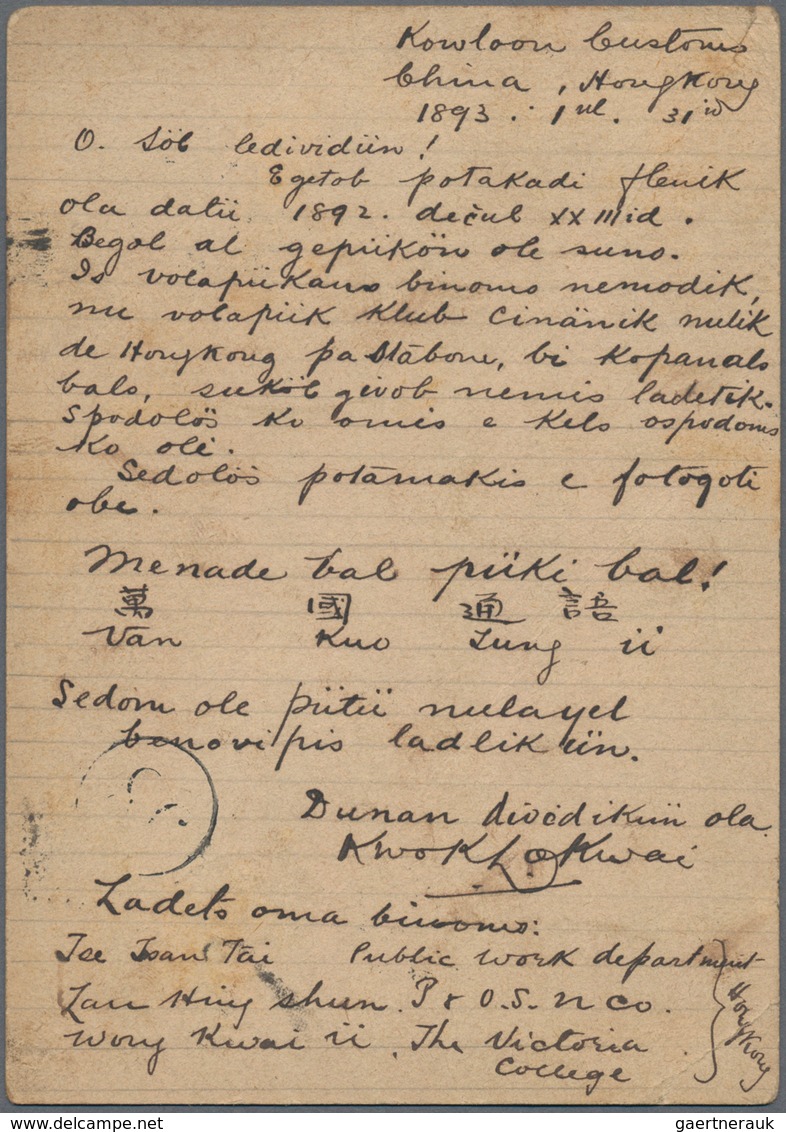 Kowloon Customs
China, Hongkong
1893. 1ul. 31id
O. Söl ledividün!
Egetob potakadi flenik
ola datü 1892. dečul XXIIIid.
Begol al gepükön ole suno.
Is volapükans binoms nemodik,
nu volapük klub Cinänik nulik
de Hongkong pa stabone, bi kopanals
bals, sukö givob nemis ladetik.
Spodolös ko omis e kels ospodoms
ko ole.
Sedolös potamakis e fotogoti
obe.
Menade bal püki bal!
萬 國 通 語
Van Kuo Tung ii
Sedom ole pütü nulayel
benovipis ladlikün.
Dunan divodikün ola
Kwok Lo Kwai
Ladets oma binoms:
Tse Tsan Tai Public Work department
Lau Hing shun. P & O. S. N Co.
Wong Kwai ii, The Victoria
College
Hongkong
gaertnerauk